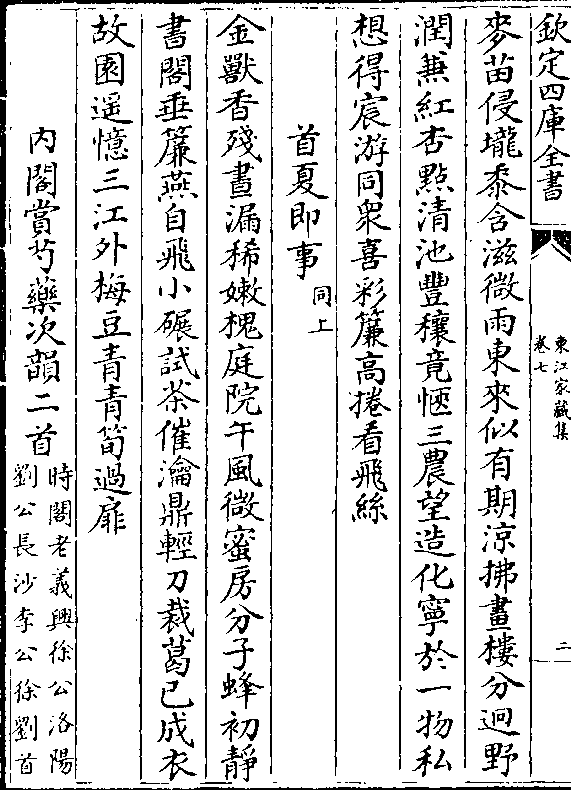 欽定四庫全書
東江家藏集
卷七
二
麥苗侵壠黍含滋微雨東來似有期涼拂畫樓分迥野
潤兼紅杏點清池豐穰竟愜三農望造化寧於一物私
想得宸游同衆喜彩簾高捲看飛絲
首夏即事同上
金獸香殘晝漏稀嫩槐庭院午風微蜜房分子蜂初靜
書閣垂簾燕自飛小碾試茶催瀹鼎輕刀裁葛已成衣
故園遥憶三江外梅豆青青筍過扉
內閣賞芍藥次韻二首時閣老義興徐公洛陽
劉公長沙李公徐劉首